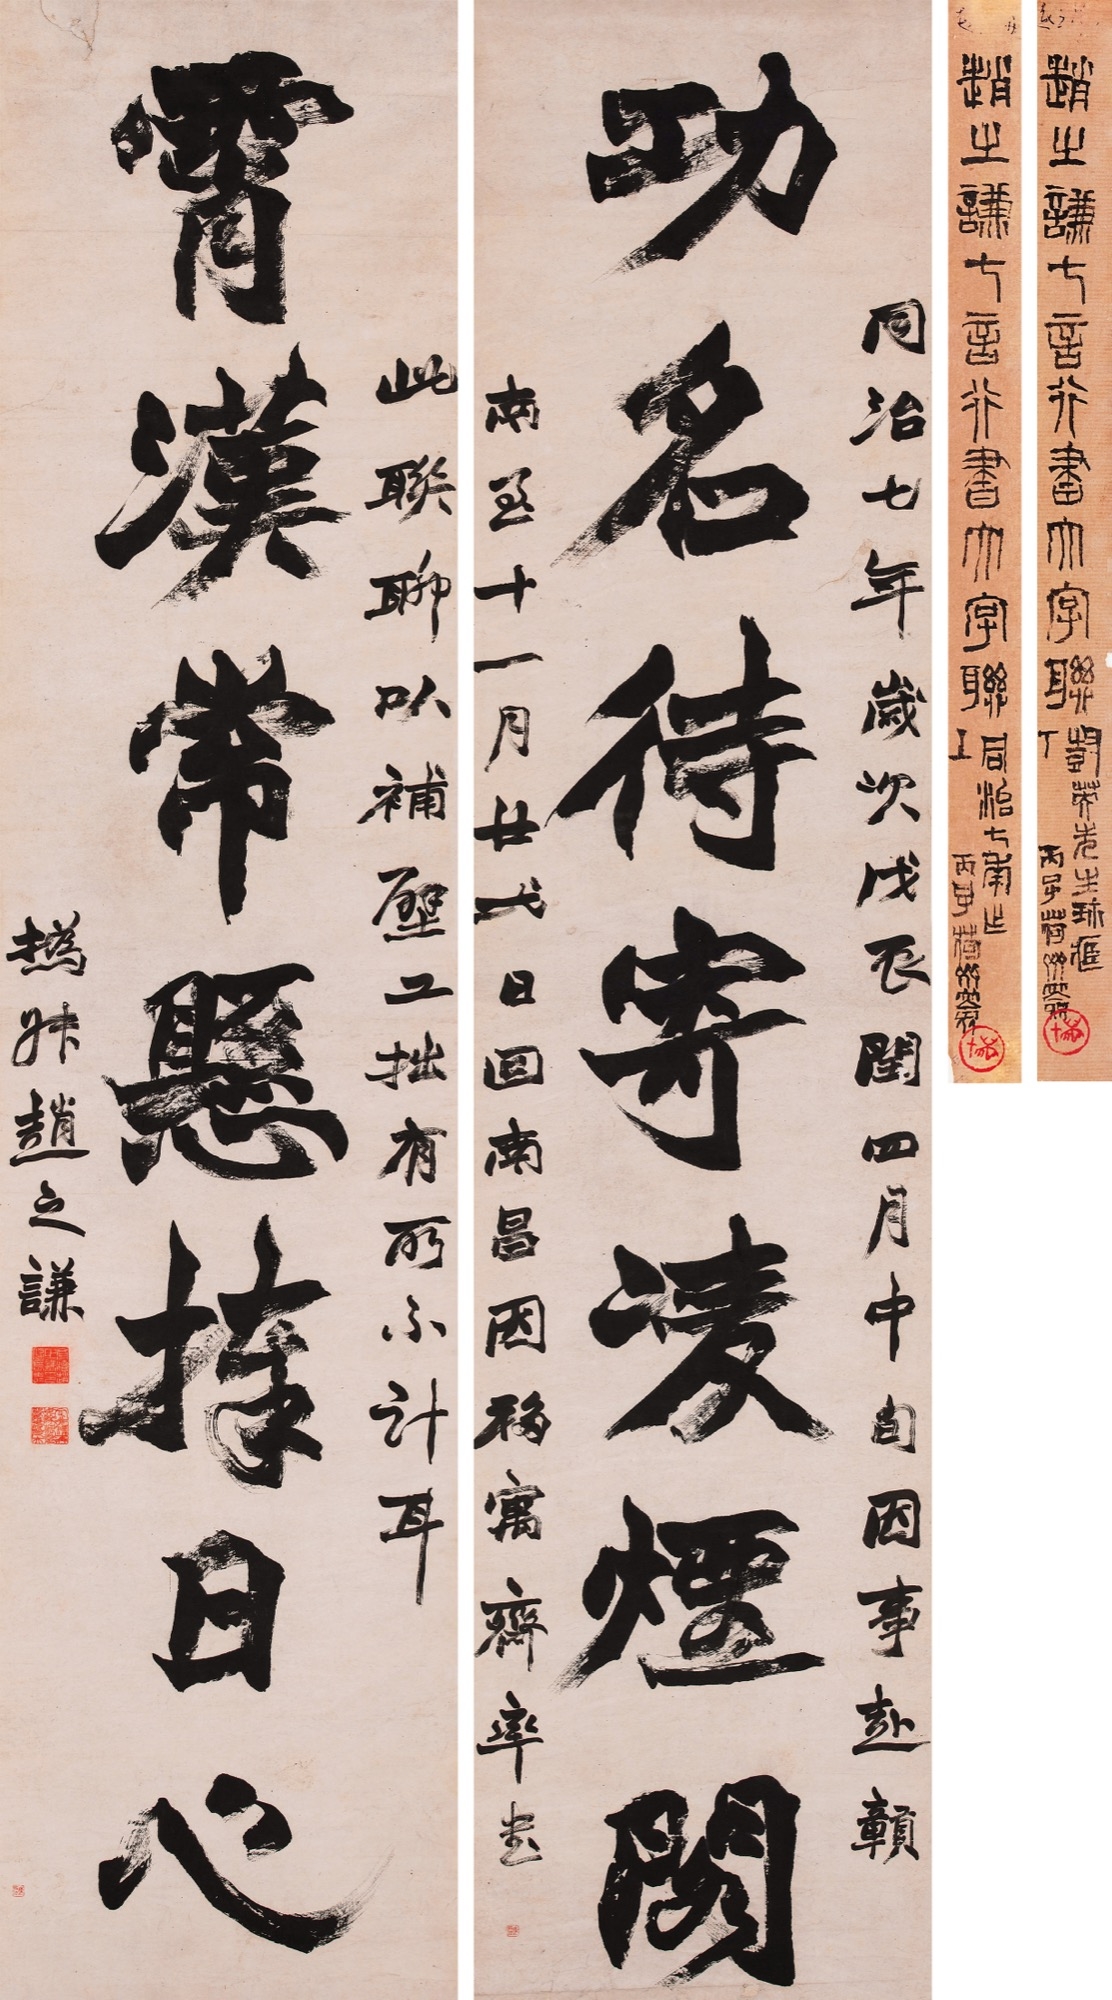 趙之謙七言行書大字聯
趙之謙七言行書大字聯
同治七年
同治七年歲次戊辰閏四月中旬因事赴贛
功名待寄凌煙閣
南至十一月廿八日回南昌因移寓齋率書
此聯聊以補壁工拙有所不計耳
霄漢常懸捧日心
撝叔趙之謙